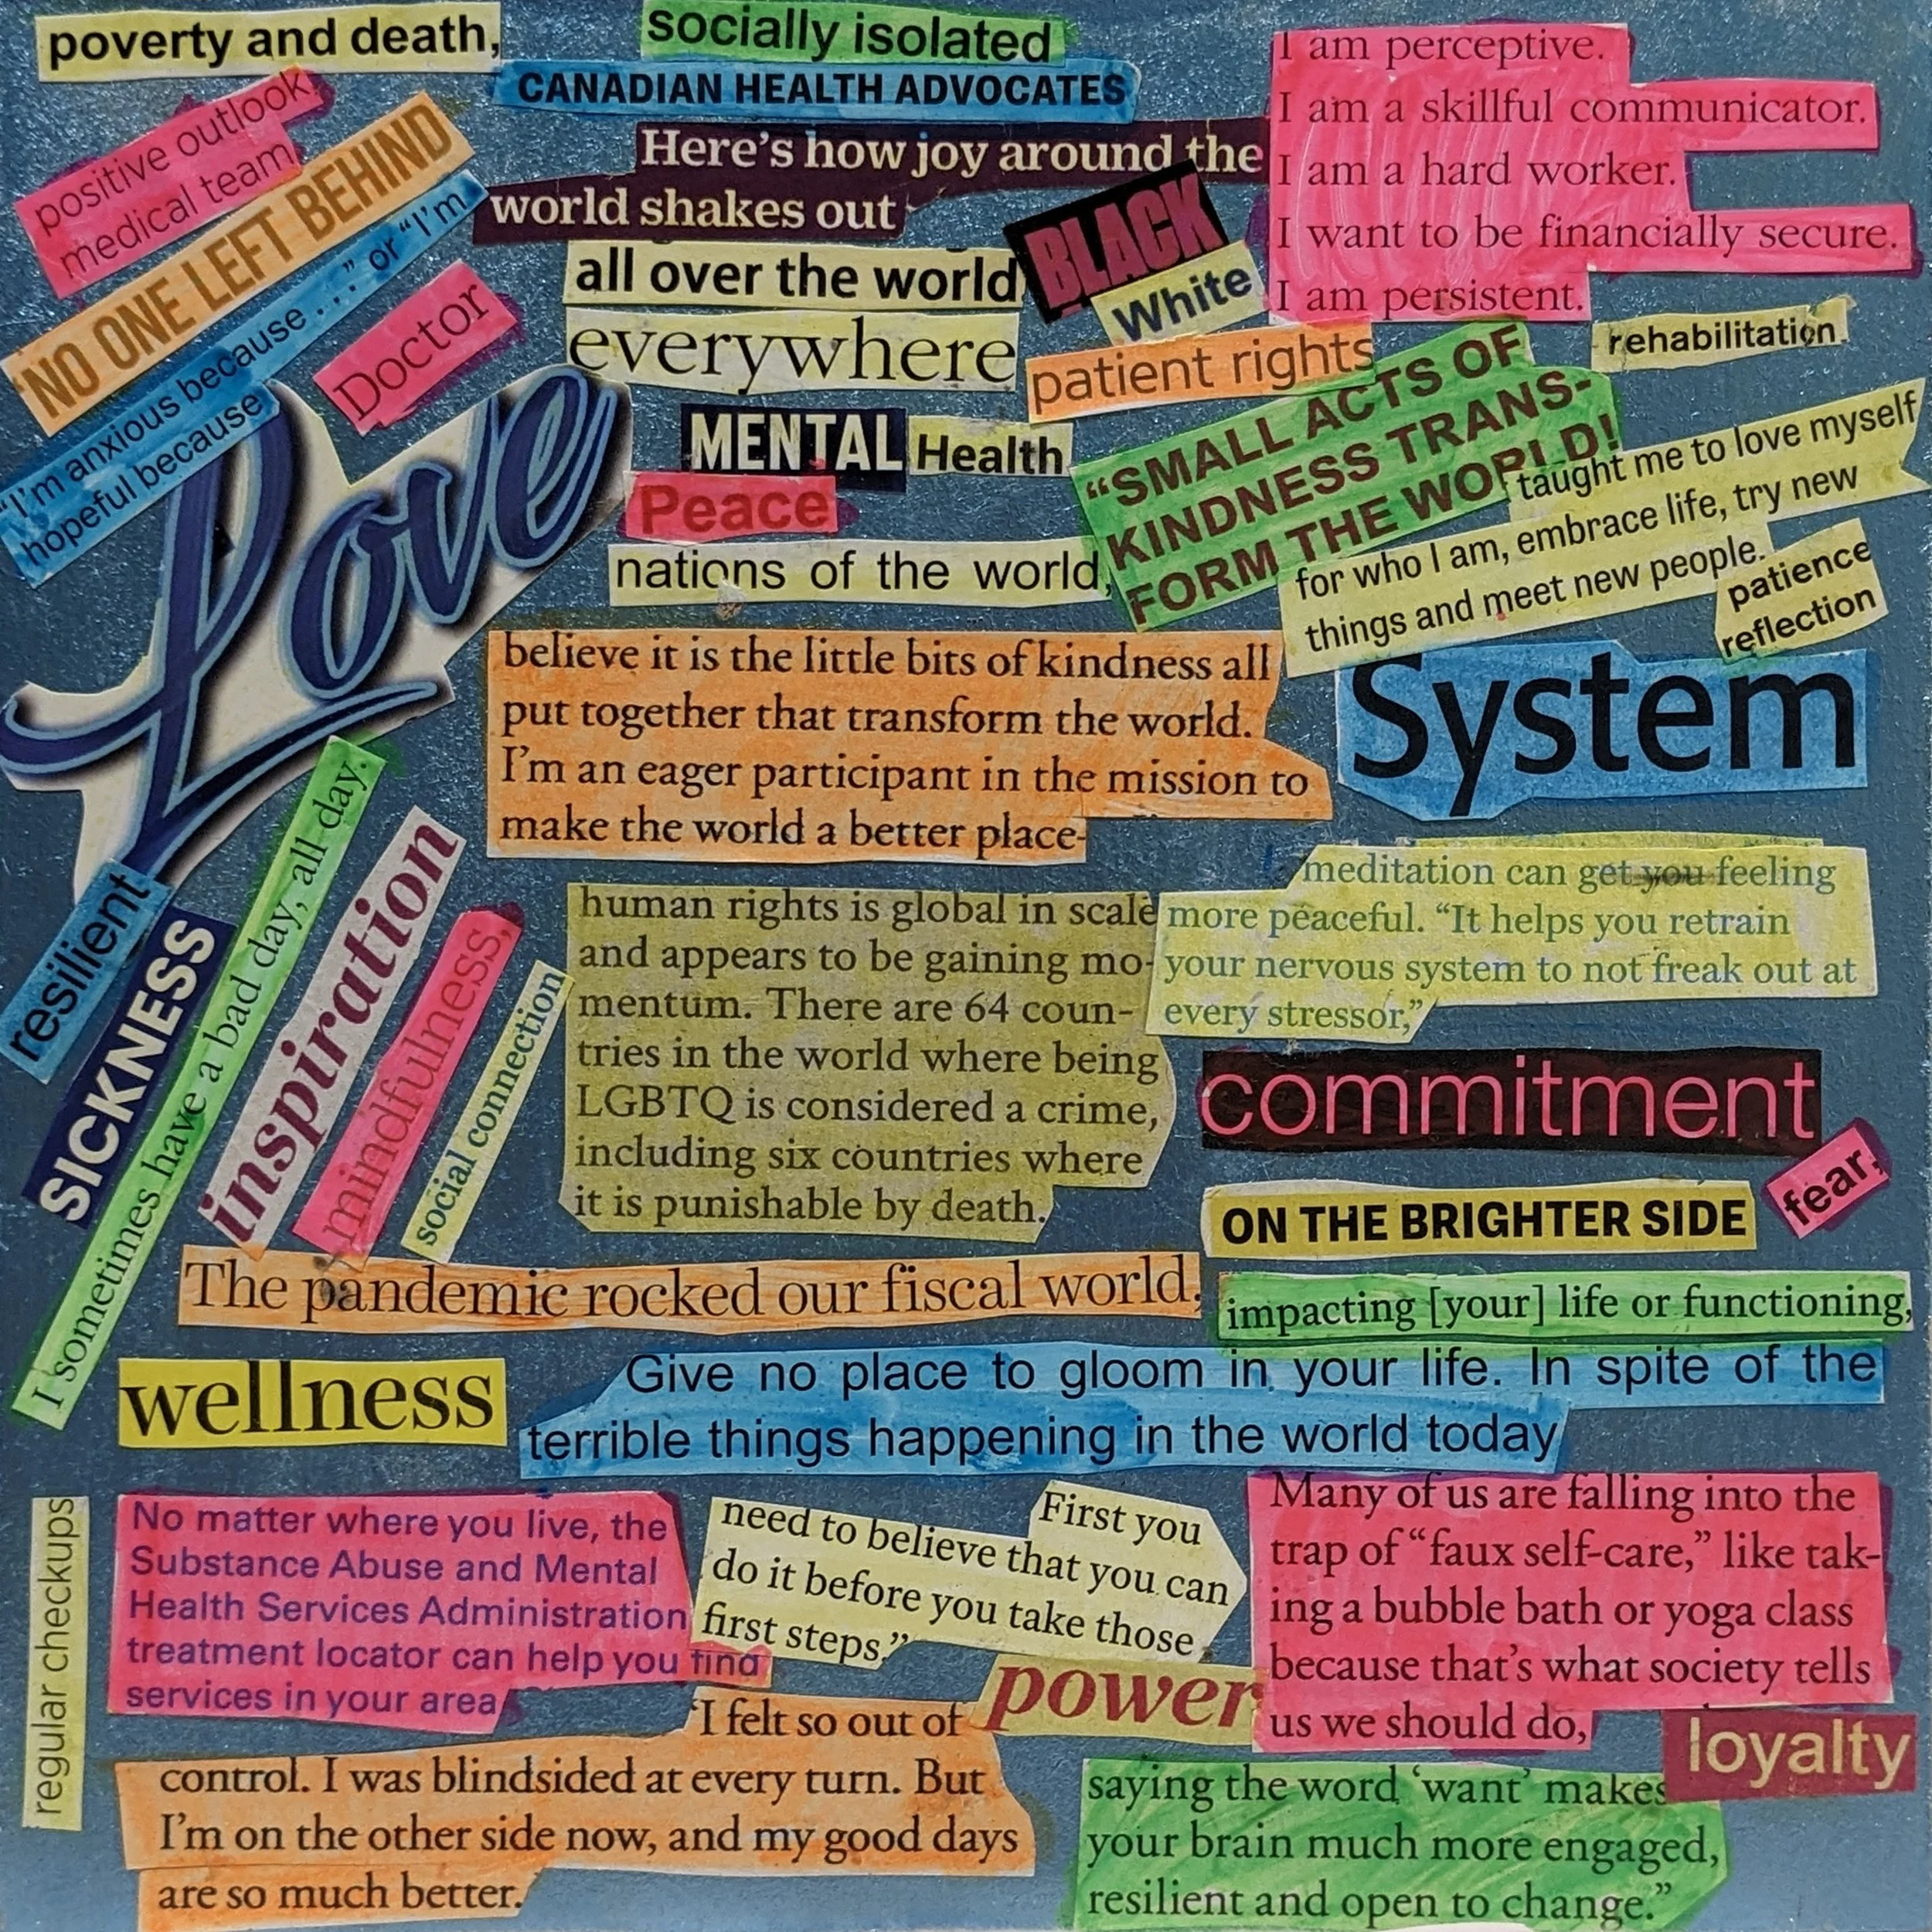 poverty and death,
socially isolated
CANADIAN HEALTH ADVOCATES
I am perceptive.
I am a skillful communicator.
I am a hard worker.
I want to be financially secure.
I am persistent.
positive outlook
medical team
NO ONE LEFT BEHIND
"I'm anxious because . . ." or "I'm
hopeful because
Doctor
Here's how joy around the
world shakes out
all over the world
everywhere
BLACK
White
patient rights
rehabilitation
Love
MENTAL
Health
Peace
nations of the world,
"SMALL ACTS OF
KINDNESS TRANS-
FORM THE WORLD!
taught me to love myself
for who I am, embrace life, try new
things and meet new people.
patience
reflection
believe it is the little bits of kindness all
put together that transform the world.
I'm an eager participant in the mission to
make the world a better place-
System
resilient
SICKNESS
I sometimes have a bad day, all day.
inspiration
mindfulness,
social connection
human rights is global in scale
and appears to be gaining mo-
mentum. There are 64 coun-
tries in the world where being
LGBTQ is considered a crime,
including six countries where
it is punishable by death.
meditation can get you feeling
more peaceful. "It helps you retrain
your nervous system to not freak out at
every stressor,"
commitment
ON THE BRIGHTER SIDE
fear,
The pandemic rocked our fiscal world.
impacting [your] life or functioning,
wellness
Give no place to gloom in your life. In spite of the
terrible things happening in the world today
regular checkups
No matter where you live, the
Substance Abuse and Mental
Health Services Administration
treatment locator can help you find
services in your area
First you
need to believe that you can
do it before you take those
first steps."
Many of us are falling into the
trap of "faux self-care," like tak-
ing a bubble bath or yoga class
because that's what society tells
us we should do,
power
loyalty
'I felt so out of
control. I was blindsided at every turn. But
I'm on the other side now, and my good days
are so much better.
saying the word 'want' makes
your brain much more engaged,
resilient and open to change."